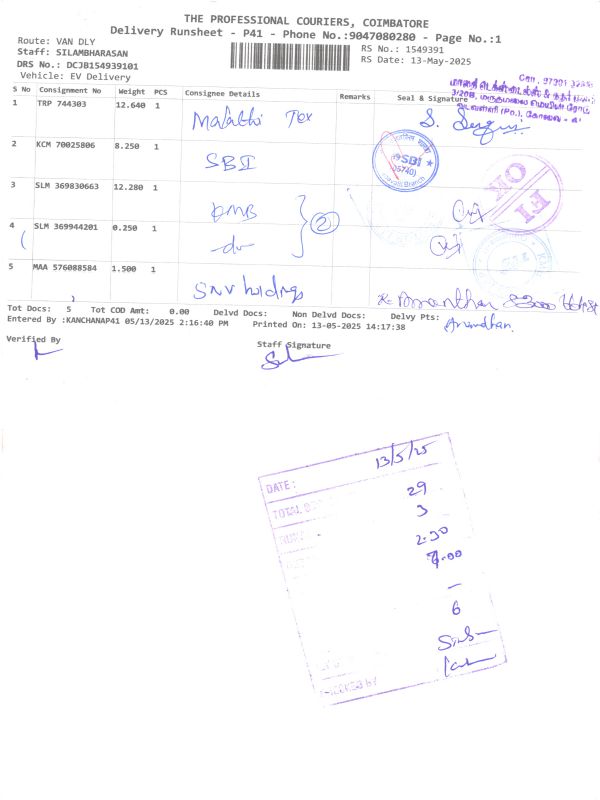 THE PROFESSIONAL COURIERS, COIMBATORE
Delivery Runsheet - P41 - Phone No.:9047080280 - Page No.:1
Route: VAN DLY
RS No.: 1549391
Staff: SILAMBHARASAN
RS Date: 13-May-2025
DRS No.: DCJB154939101
Vehicle: EV Delivery
S No Consignment No Weight PCS Consignee Details Remarks Seal & Signature
1 TRP 744303 12.640 1 Malathi Tex
2 KCM 70025806 8.250 1 SBI
SBI
Branch
3 SLM 369830663 12.280 1 KMB
2
4 SLM 369944201 0.250 1 -do-
5 MAA 576088584 1.500 1 SNV holdings
Tot Docs: 5 Tot COD Amt: 0.00 Delvd Docs: Non Delvd Docs: Delvy Pts:
Entered By :KANCHANAP41 05/13/2025 2:16:40 PM Printed On: 13-05-2025 14:17:38
Verified By
Staff Signature
DATE: 13/5/25
TOTAL 29
3
2.30
7.00
-
6